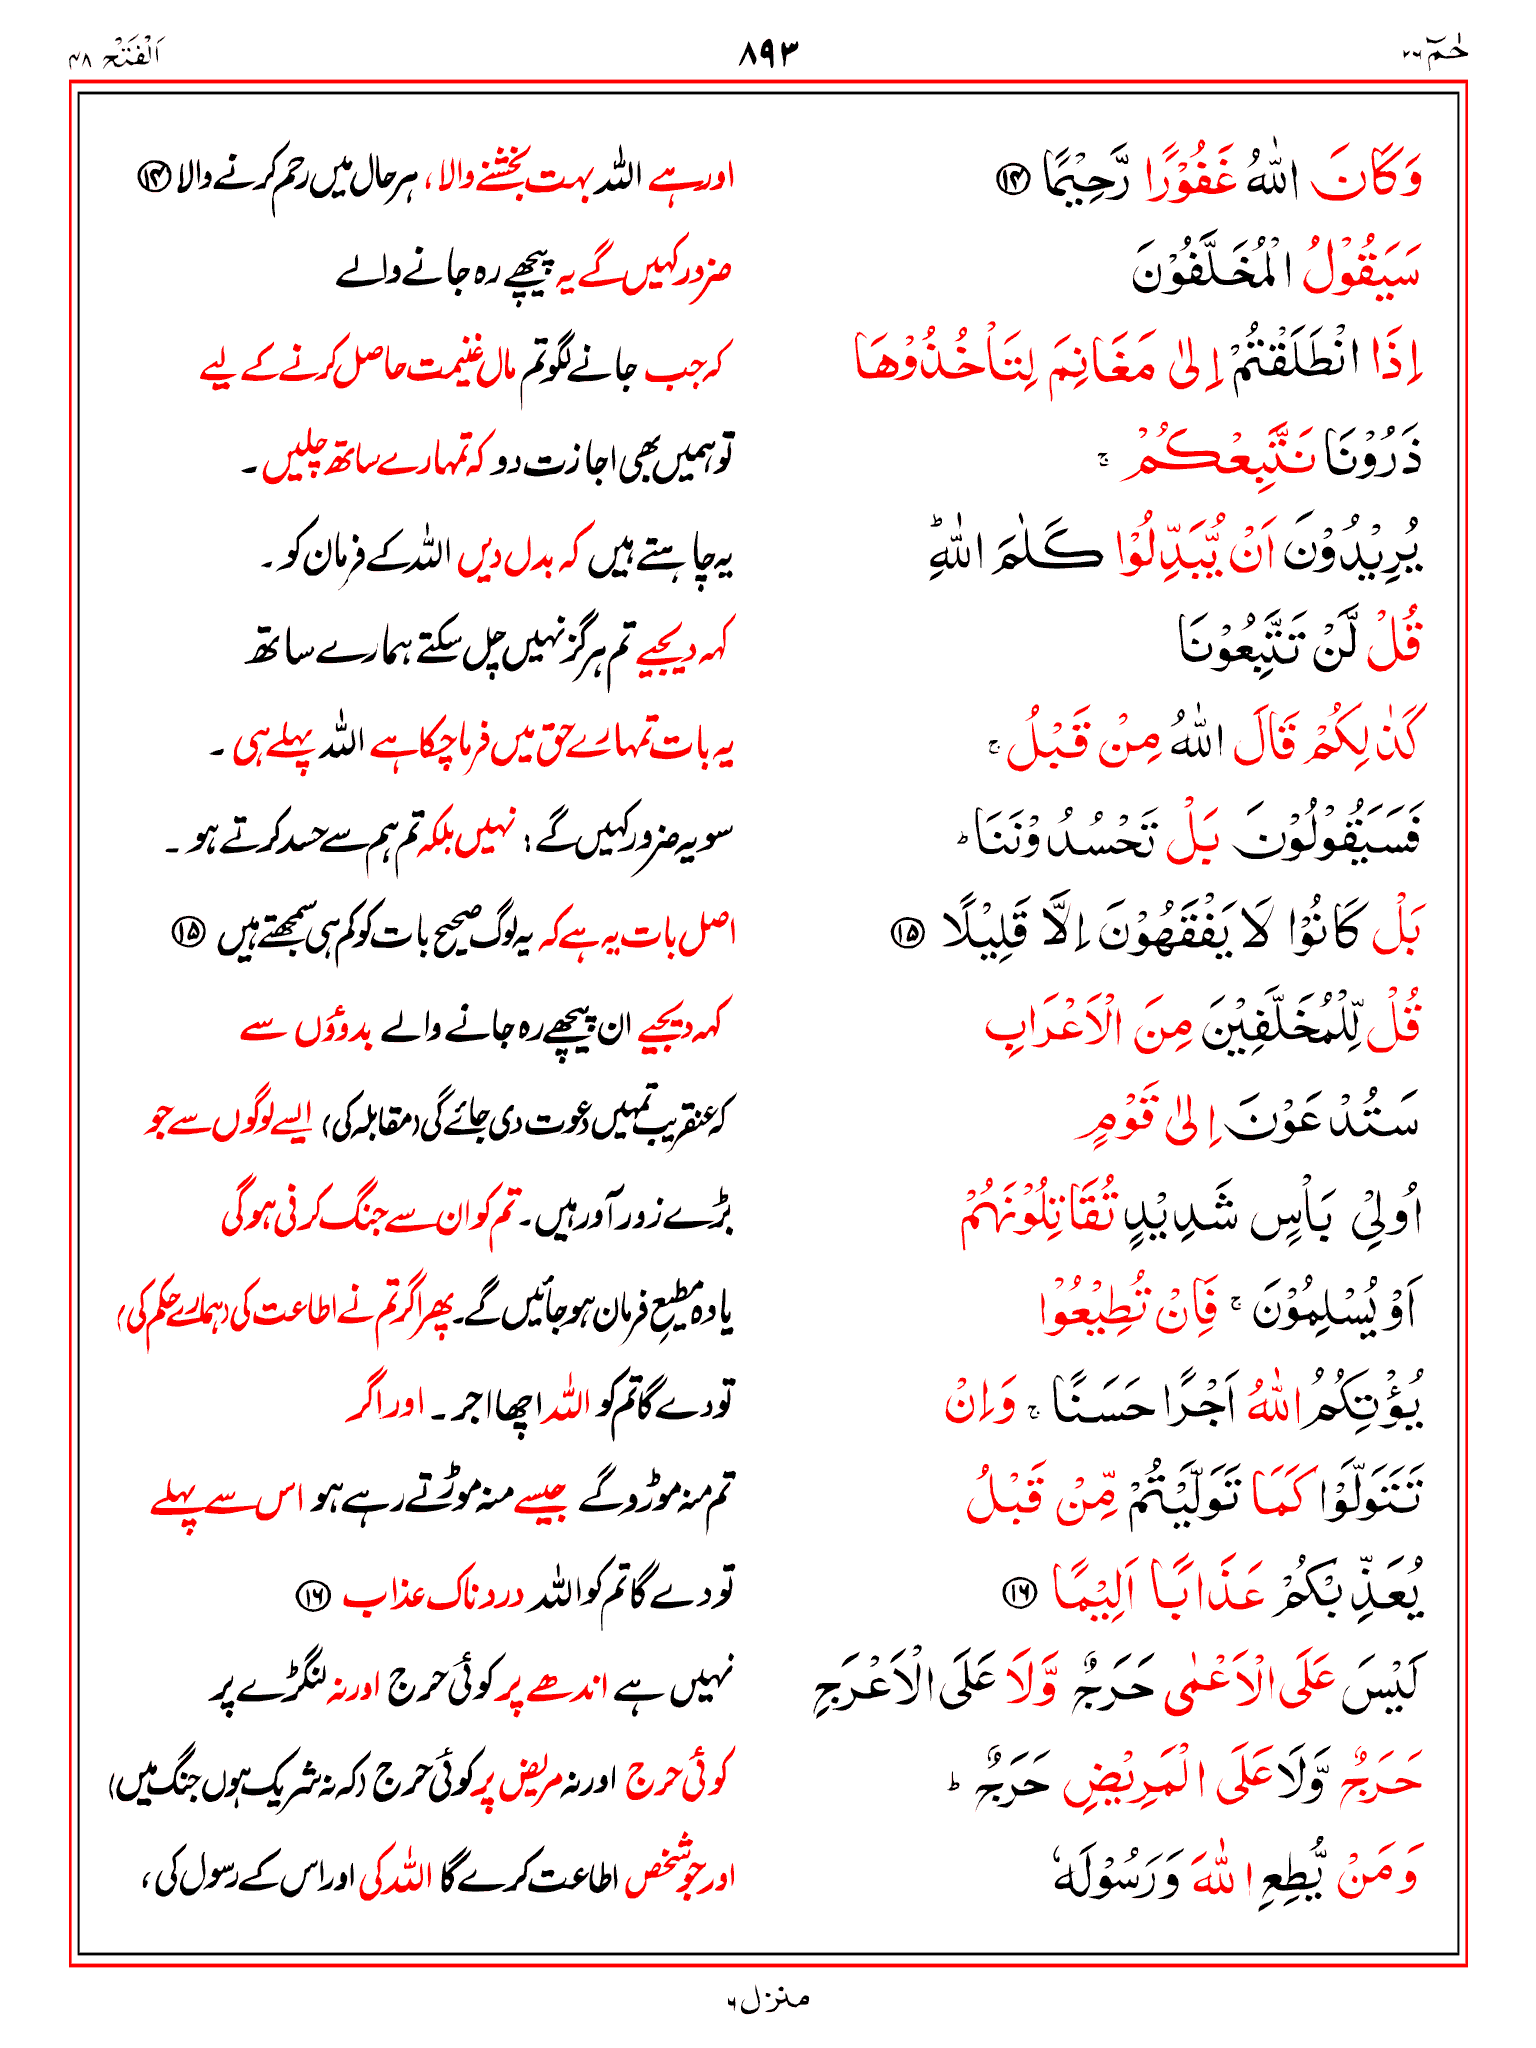 حٰمٓ ۲۶
۸۹۳
اَلْفَتْح ۴۸
وَكَانَ اللّٰهُ غَفُوْرًا رَّحِيْمًا ۝۱۴
اور ہے اللہ بہت بخشنے والا، ہر حال میں رحم کرنے والا ۝۱۴
سَيَقُوْلُ الْمُخَلَّفُوْنَ
ضرور کہیں گے یہ پیچھے رہ جانے والے
اِذَا انْطَلَقْتُمْ اِلٰى مَغَانِمَ لِتَاْخُذُوْهَا
کہ جب جانے لگو تم مال غنیمت حاصل کرنے کے لیے
ذَرُوْنَا نَتَّبِعْكُمْ ۚ
تو ہمیں بھی اجازت دو کہ تمہارے ساتھ چلیں۔
يُرِيْدُوْنَ اَنْ يُّبَدِّلُوْا كَلٰمَ اللّٰهِ ؕ
یہ چاہتے ہیں کہ بدل دیں اللہ کے فرمان کو۔
قُلْ لَّنْ تَتَّبِعُوْنَا
کہہ دیجیے تم ہرگز نہیں چل سکتے ہمارے ساتھ
كَذٰلِكُمْ قَالَ اللّٰهُ مِنْ قَبْلُ ۚ
یہ بات تمہارے حق میں فرما چکا ہے اللہ پہلے ہی۔
فَسَيَقُوْلُوْنَ بَلْ تَحْسُدُوْنَنَا ؕ
سو یہ ضرور کہیں گے : نہیں بلکہ تم ہم سے حسد کرتے ہو۔
بَلْ كَانُوْا لَا يَفْقَهُوْنَ اِلَّا قَلِيْلًا ۝۱۵
اصل بات یہ ہے کہ یہ لوگ صحیح بات کو کم ہی سمجھتے ہیں ۝۱۵
قُلْ لِّلْمُخَلَّفِيْنَ مِنَ الْاَعْرَابِ
کہہ دیجیے ان پیچھے رہ جانے والے بدوؤں سے
سَتُدْعَوْنَ اِلٰى قَوْمٍ
کہ عنقریب تمہیں دعوت دی جائے گی (مقابلہ کی) ایسے لوگوں سے جو
اُولِيْ بَاْسٍ شَدِيْدٍ تُقَاتِلُوْنَهُمْ
بڑے زور آور ہیں۔ تم کو ان سے جنگ کرنی ہوگی
اَوْ يُسْلِمُوْنَ ۚ فَاِنْ تُطِيْعُوْا
یا وہ مطیعِ فرمان ہو جائیں گے۔ پھر اگر تم نے اطاعت کی (ہمارے حکم کی)
يُؤْتِكُمُ اللّٰهُ اَجْرًا حَسَنًا ۚ وَاِنْ
تو دے گا تم کو اللہ اچھا اجر۔ اور اگر
تَتَوَلَّوْا كَمَا تَوَلَّيْتُمْ مِّنْ قَبْلُ
تم منہ موڑو گے جیسے منہ موڑتے رہے ہو اس سے پہلے
يُعَذِّبْكُمْ عَذَابًا اَلِيْمًا ۝۱۶
تو دے گا تم کو اللہ دردناک عذاب ۝۱۶
لَيْسَ عَلَى الْاَعْمٰى حَرَجٌ وَّلَا عَلَى الْاَعْرَجِ
نہیں ہے اندھے پر کوئی حرج اور نہ لنگڑے پر
حَرَجٌ وَّلَا عَلَى الْمَرِيْضِ حَرَجٌ ؕ
کوئی حرج اور نہ مریض پر کوئی حرج (کہ نہ شریک ہوں جنگ میں)
وَمَنْ يُّطِعِ اللّٰهَ وَرَسُوْلَهٗ
اور جو شخص اطاعت کرے گا اللہ کی اور اس کے رسول کی،
منزل ۶